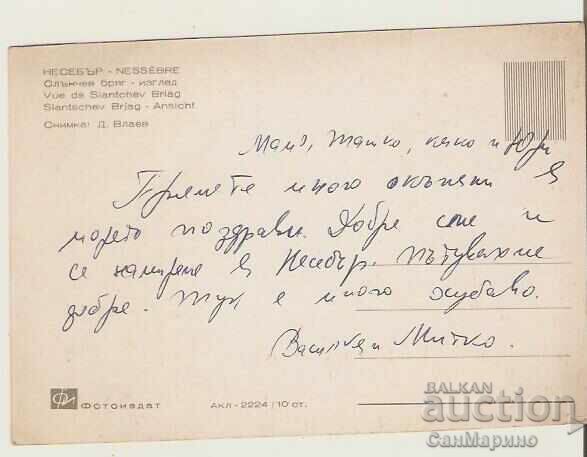 НЕСЕБЪР - NESSÈBRE
Слънчев бряг - изглед
Vue de Slantchev Briag
Slantschev Brjag - Ansicht
Снимка: Д. Влаев
Мамо, Татко, како и Юри
Приемете много окъпани в
морето поздрави. Добре сме и
се намираме в Несебър. Пътувахме
добре. Тук е много хубаво.
Василка и Митко.
Фотоиздат
АКЛ-2224/10 ст.
BALKAN
auction
СанМарино